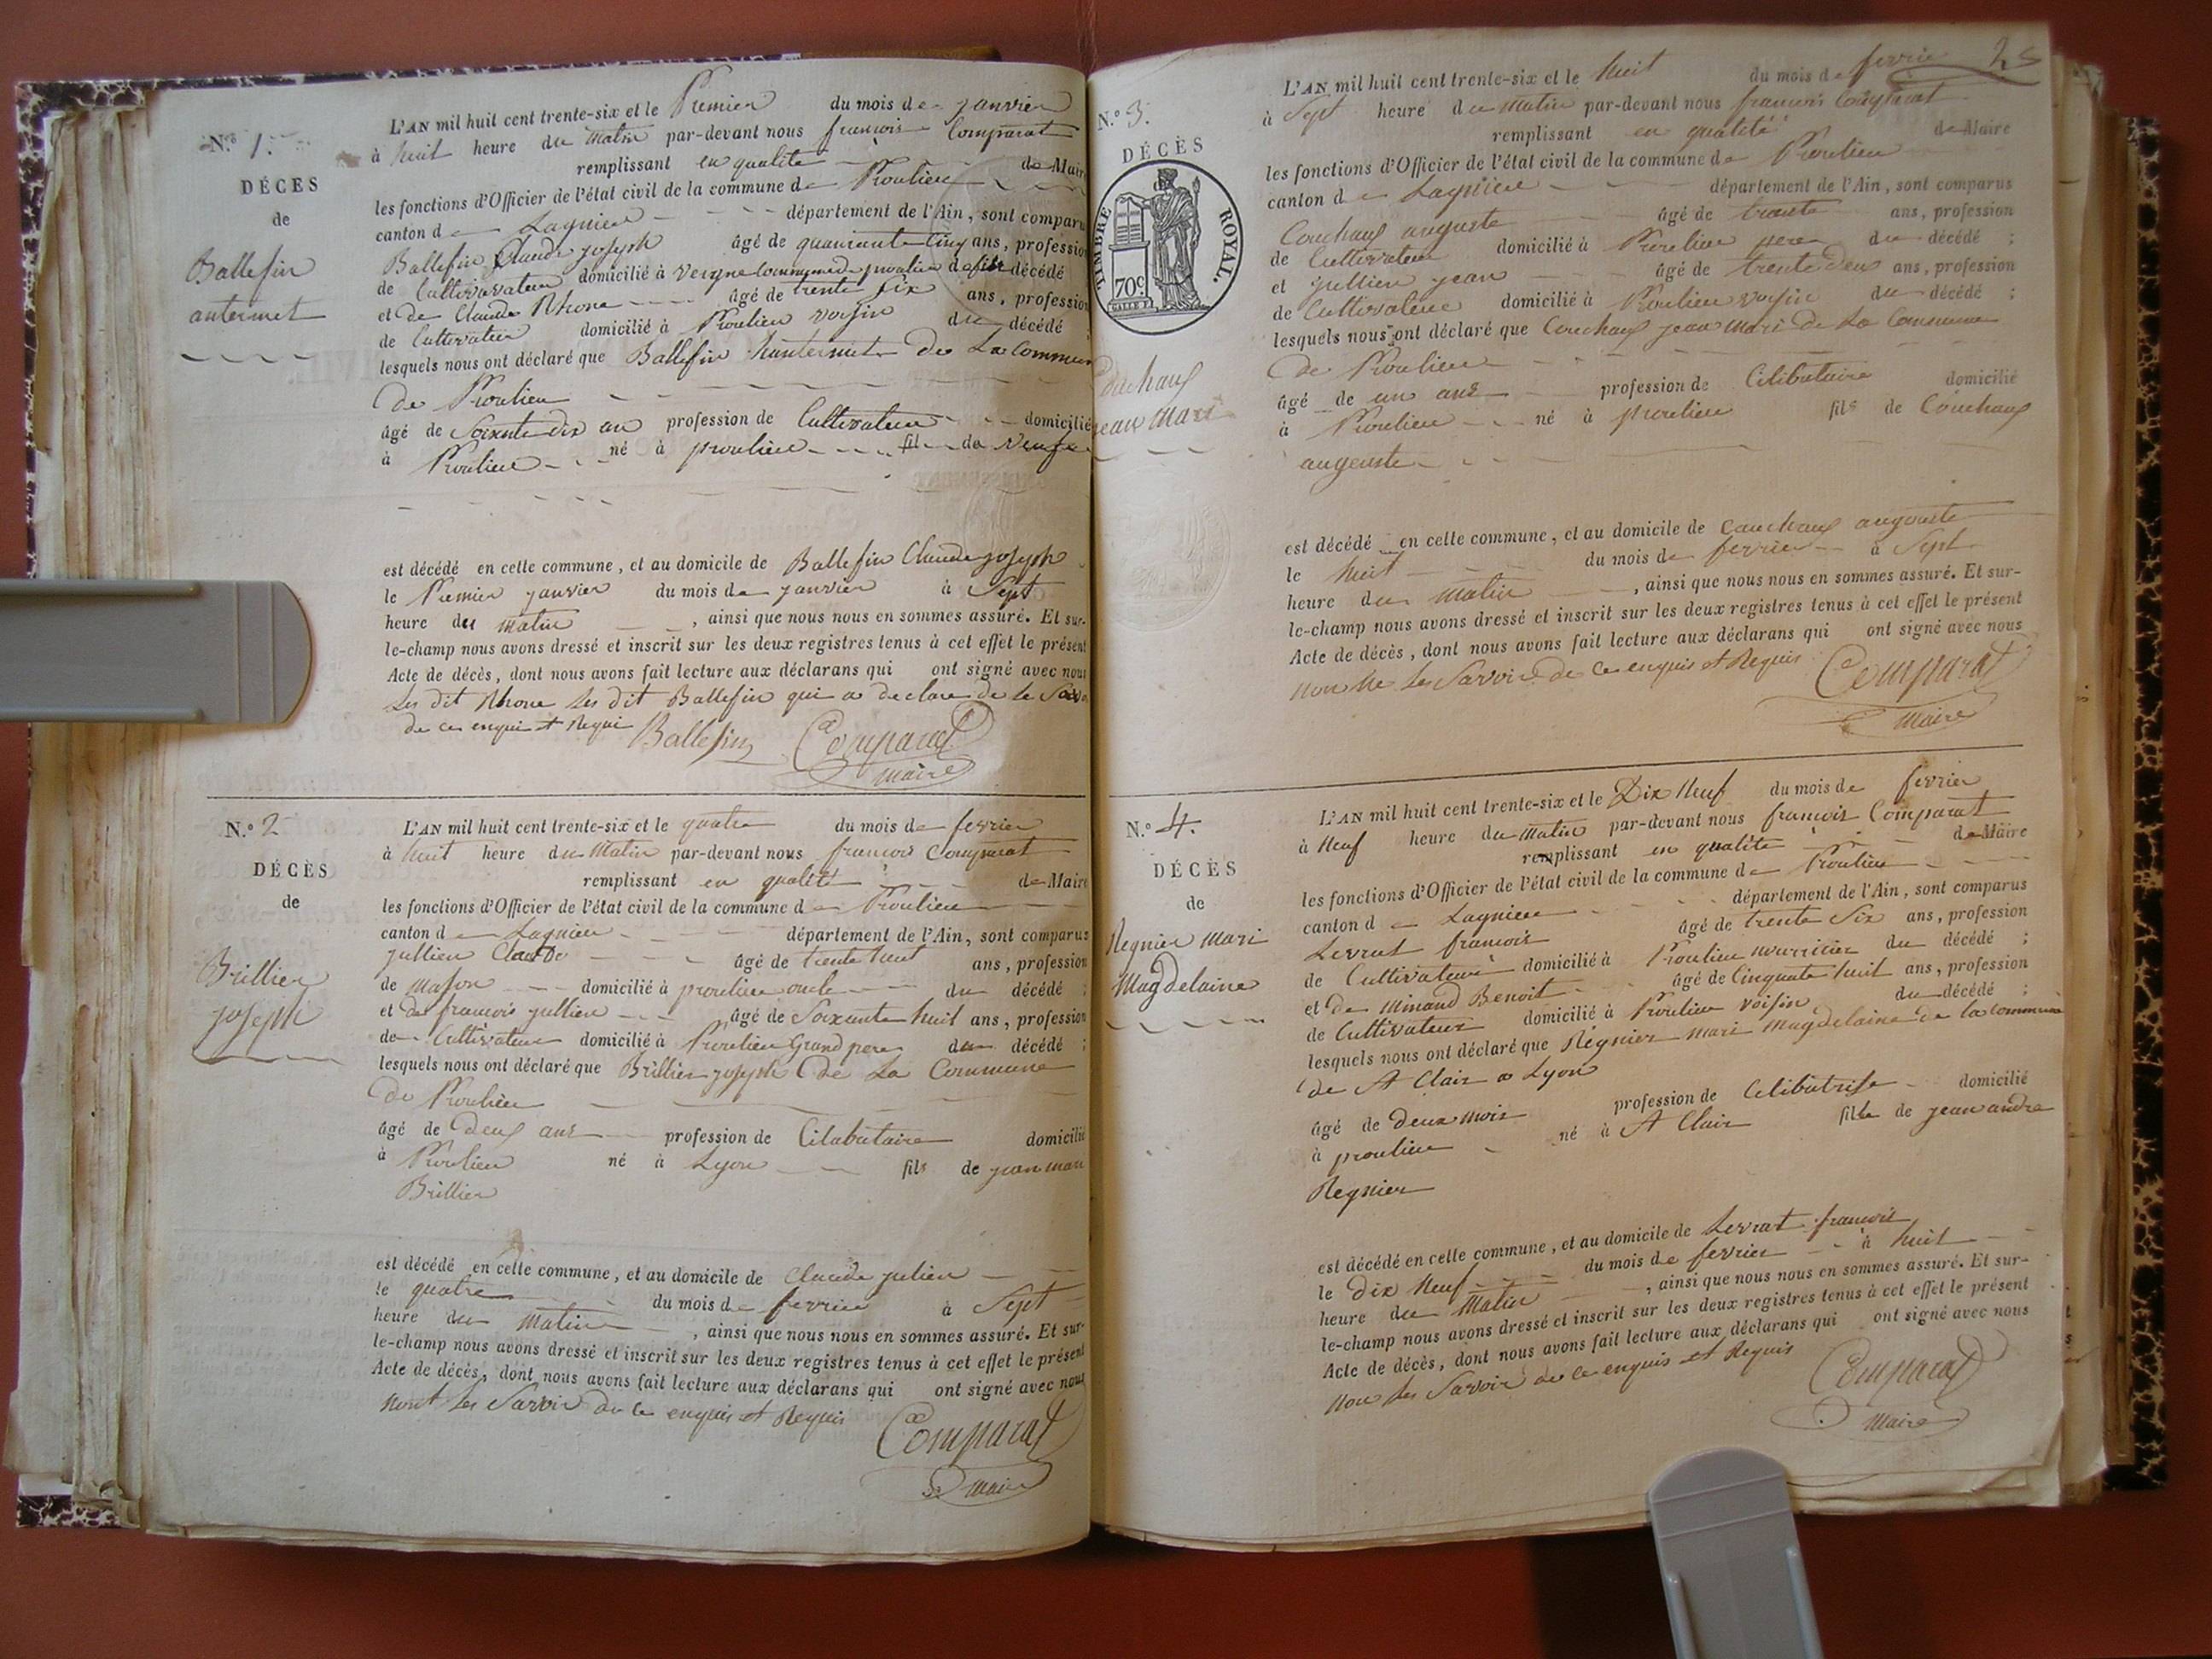 N.º 1.
DÉCES
de
Ballefin
antermet
L'AN mil huit cent trente-six et le Premier du mois de janvier
à huit heure du matin par-devant nous francois Comparat
remplissant en qualité de Maire
les fonctions d'Officier de l'état civil de la commune de Proulieu
canton de Lagnieu département de l'Ain, sont comparu
Ballefin Claude joseph âgé de quarante Cinq ans, profession
de Cultivavateur domicilié à Vergne commune de proulieu fils décédé
et de Claude Rhone âgé de trente six ans, profession
de Cultivateur domicilié à Proulieu voisin du décédé
lesquels nous ont déclaré que Ballefin hantermet De La Commun
De Proulieu
âgé de Soixente dix an profession de Cultivateur domicilié
à Proulieu né à proulieu fil de
est décédé en cette commune, et au domicile de Ballefin Claude joseph
le Premier janvier du mois de janvier à Sept
heure du matin, ainsi que nous nous en sommes assuré. Et sur-
le-champ nous avons dressé et inscrit sur les deux registres tenus à cet effet le présent
Acte de décès, dont nous avons fait lecture aux déclarans qui ont signé avec nous
Les dit Rhone Les dit Ballefin qui a declare de le
de ce enqui et Requi Ballefin Comparat
maire
N.º 2
DÉCÈS
de
Brillier
joseph
L'AN mil huit cent trente-six et le quatre du mois de fevrier
à huit heure du Matin par-devant nous francois Comparat
remplissant en qualité de Maire
les fonctions d'Officier de l'état civil de la commune de Proulieu
canton de Lagnieu département de l'Ain, sont comparus
jullien Claude âgé de trente huit ans, profession
de mason domicilié à proulieu oncle du décédé ;
et de francois jullien âgé de Soixante huit ans, profession
de Cultivateur domicilié à Proulieu Grand pere du décédé ;
lesquels nous ont déclaré que Brillier joseph De La Commune
De Proulieu
âgé de Deux ans profession de Cilabutaire domicilié
à Proulieu né à Lyon fils de jean mari
Brillier
est décédé en cette commune, et au domicile de Claude julien
le quatre du mois de fevrier à Sept
heure du matin, ainsi que nous nous en sommes assuré. Et sur-
le-champ nous avons dressé et inscrit sur les deux registres tenus à cet effet le présent
Acte de décès, dont nous avons fait lecture aux déclarans qui ont signé avec nous
nont Les Savoir de ce enquis et Requis Comparat
maire
N.º 3.
DÉCÈS
TIMBRE ROYAL.
70 c.
Couchaux
jean Mari
L'AN mil huit cent trente-six et le huit du mois de fevrier
à Sept heure du matin par-devant nous francois Comparat
remplissant en qualité de Maire
les fonctions d'Officier de l'état civil de la commune de Proulieu
canton de Lagnieu département de l'Ain, sont comparus
Couchaux auguste âgé de trente ans, profession
de Cultivateur domicilié à Proulieu pere du décédé ;
et jullien jean âgé de trente deux ans, profession
de Cultivateur domicilié à Proulieu voisin du décédé ;
lesquels nous ont déclaré que Couchaux jean mari De La Commune
De Proulieu
âgé de un ans profession de Cilibutaire domicilié
à Proulieu né à proulieu fils de Couchaux
augeuste
est décédé en cette commune, et au domicile de Couchaux augouste
le huit du mois de fevrier à Sept
heure du matin, ainsi que nous nous en sommes assuré. Et sur-
le-champ nous avons dressé et inscrit sur les deux registres tenus à cet effet le présent
Acte de décès, dont nous avons fait lecture aux déclarans qui ont signé avec nous
non Les Savoir de ce enquis et Requis Comparat
maire
N.º 4.
DÉCÈS
de
Regnier mari
Magdelaine
L'AN mil huit cent trente-six et le Dix Neuf du mois de fevrier
à Neuf heure du Matin par-devant nous francois Comparat
remplissant en qualité de Maire
les fonctions d'Officier de l'état civil de la commune de Proulieu
canton de Lagnieu département de l'Ain, sont comparus
Levrat francois âgé de trente Six ans, profession
de Cultivateur domicilié à Proulieu nourricier du décédé ;
et de Minand Benoit âgé de Cinquate huit ans, profession
de Cultivateur domicilié à Proulieu voisin du décédé ;
lesquels nous ont déclaré que Regnier mari magdelaine de la commune
de St Clair a Lyon
âgé de Deux mois profession de Celibatrise domicilié
à proulieu né à St Clair fille de jean andre
Regnier
est décédé en cette commune, et au domicile de Levrat francois
le Dix Neuf du mois de fevrier à huit
heure du Matin, ainsi que nous nous en sommes assuré. Et sur-
le-champ nous avons dressé et inscrit sur les deux registres tenus à cet effet le présent
Acte de décès, dont nous avons fait lecture aux déclarans qui ont signé avec nous
non Les Savoir de ce enquis et Requis Comparat
Maire